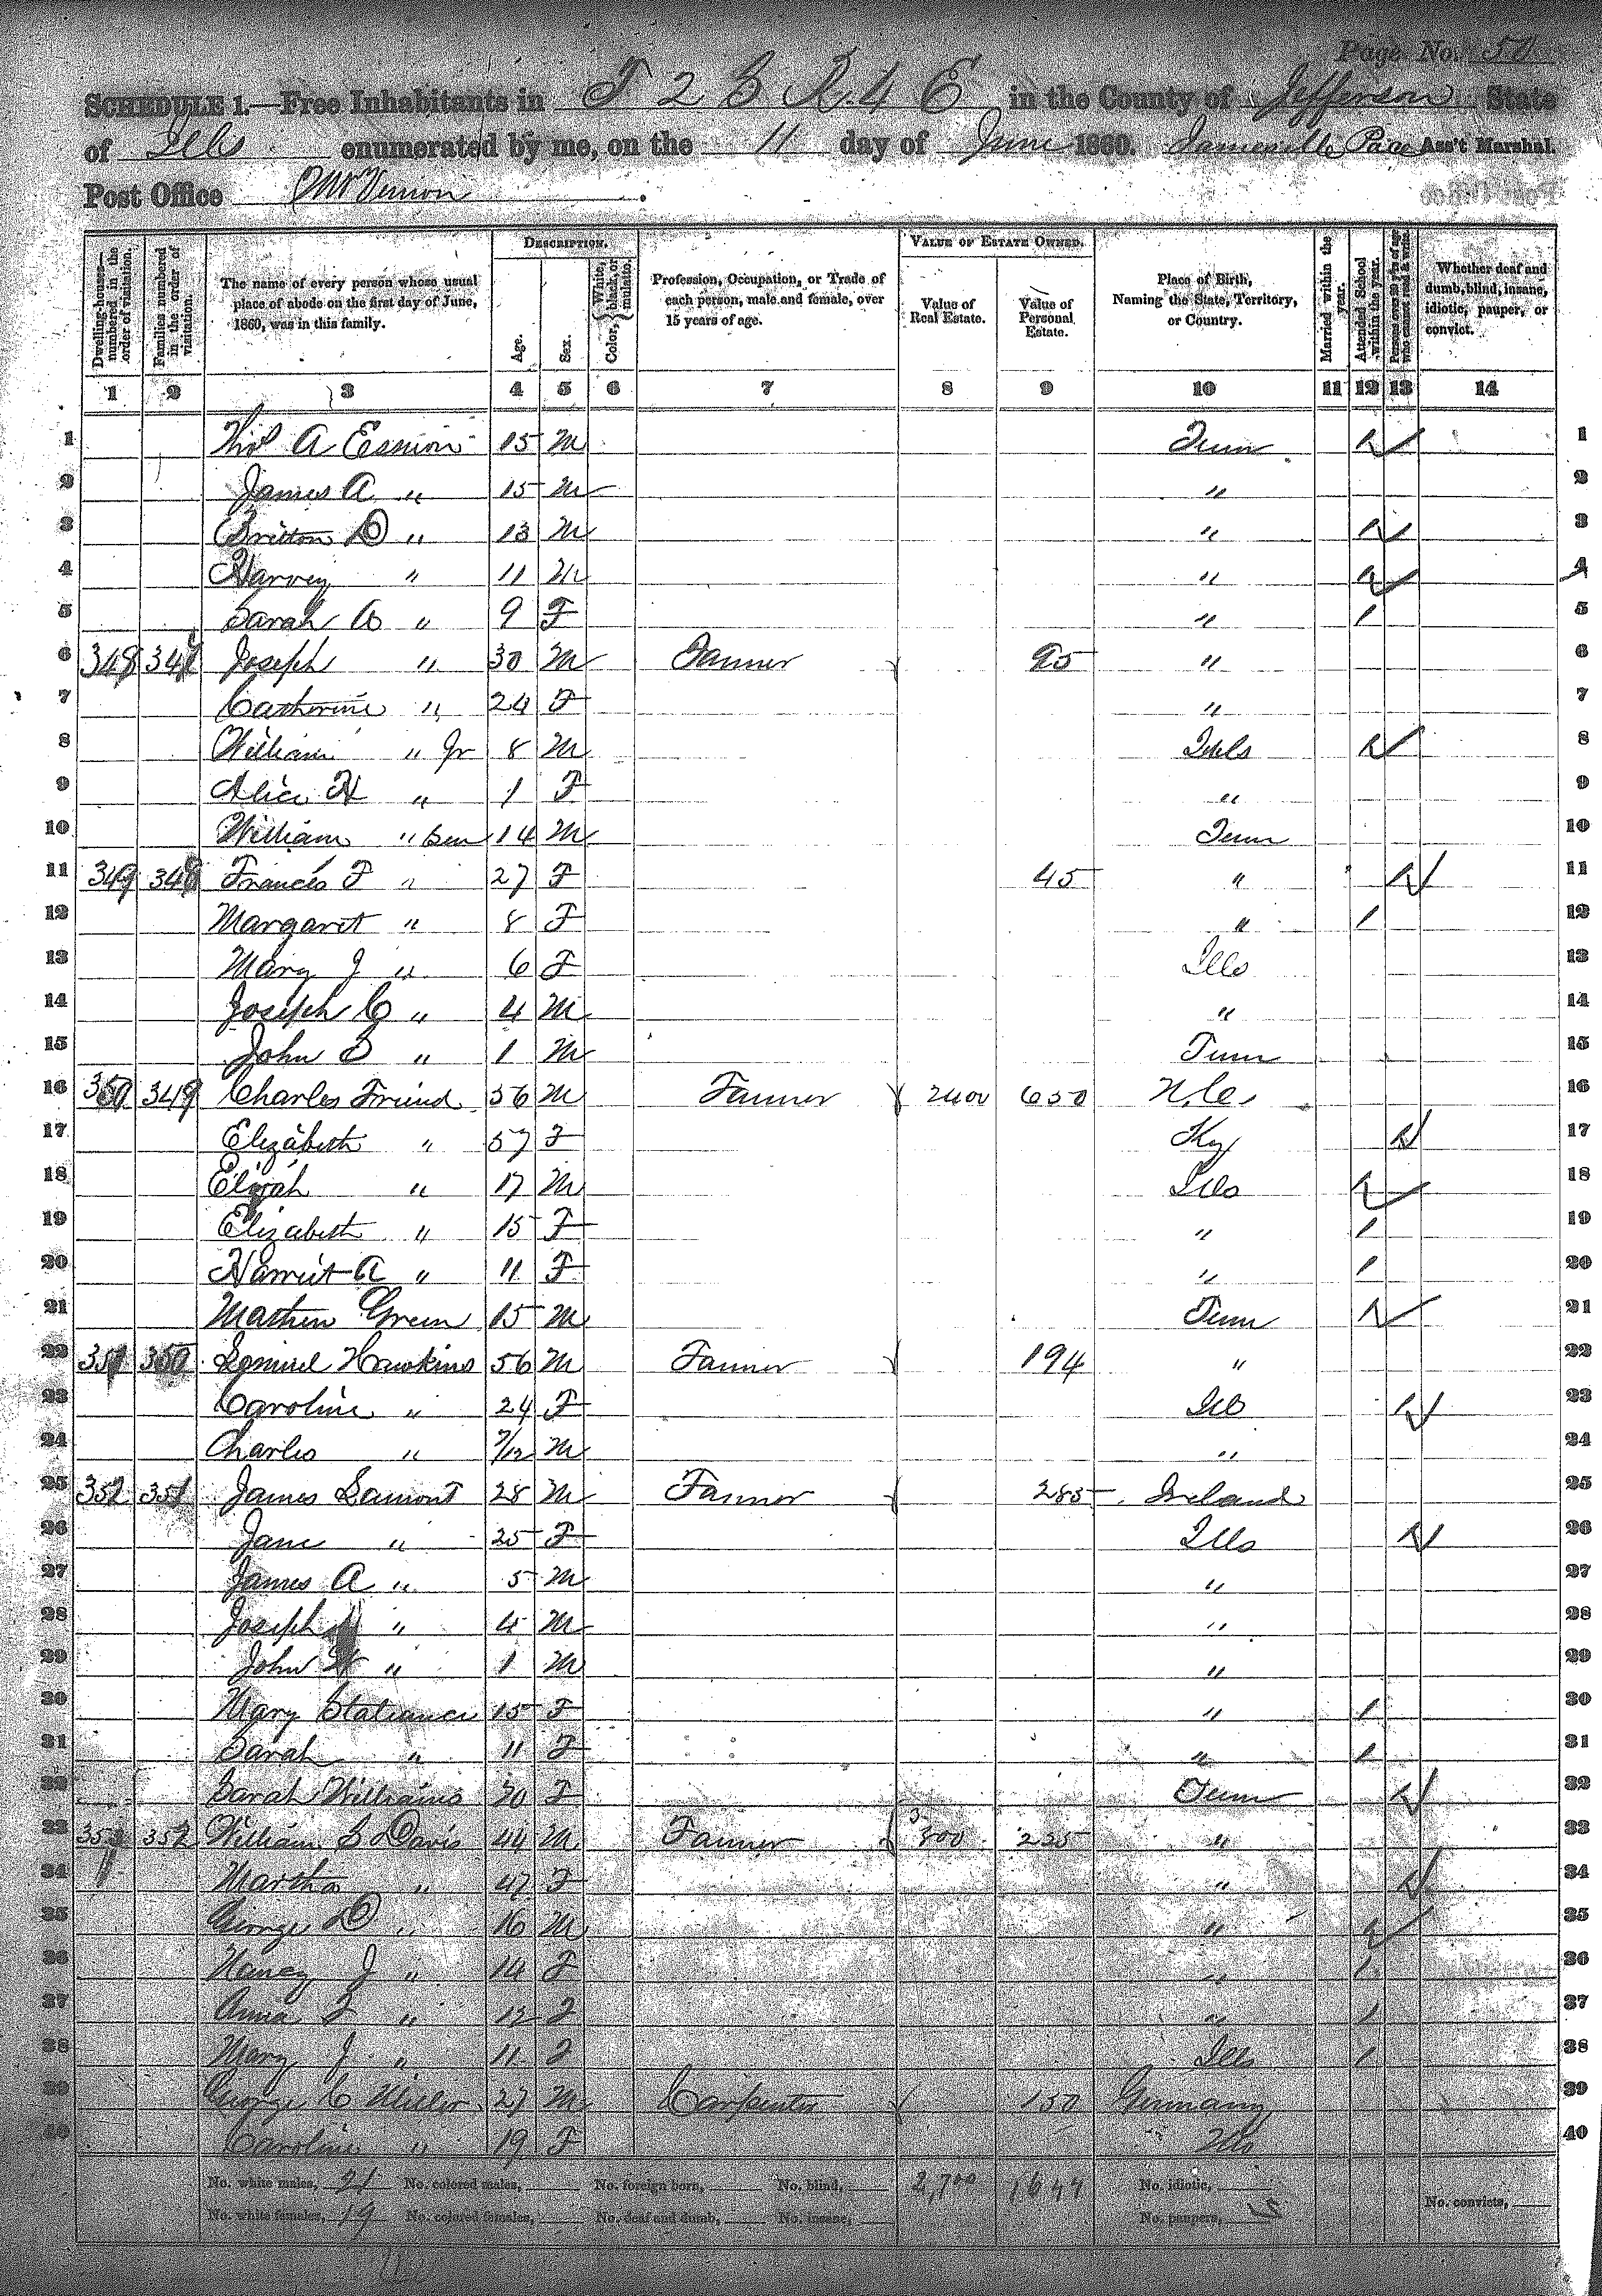 Page No. 50
SCHEDULE 1.—Free Inhabitants in T 2 S R. 4 E in the County of Jefferson State
of Ills enumerated by me, on the 11 day of June 1860. Pace Ass't Marshal.
Post Office Mt Vernon
Dwelling-houses—numbered in the order of visitation.
Families numbered in the order of visitation.
The name of every person whose usual place of abode on the first day of June, 1860, was in this family.
DESCRIPTION.
Age.
Sex.
Color, { White, black, or mulatto.
Profession, Occupation, or Trade of each person, male and female, over 15 years of age.
VALUE OF ESTATE OWNED.
Value of Real Estate.
Value of Personal Estate.
Place of Birth, Naming the State, Territory, or Country.
Married within the year.
Attended School within the year.
Persons over 20 y'rs of age who cannot read & write.
Whether deaf and dumb, blind, insane, idiotic, pauper, or convict.
1 2 3 4 5 6 7 8 9 10 11 12 13 14
1 A 15 M Tenn 1 1
2 James A " 15 M " 2
3 Britton D " 13 M " 1 3
4 Harvey " 11 M " 1 4
5 Sarah " 9 F " 1 5
6 348 347 Joseph " 30 M Farmer 95 " 6
7 Catherine " 24 F " 7
8 William " Jr 8 M Ills 1 8
9 Alice H " 1 F " 9
10 William " Sen 14 M Tenn 10
11 349 348 Frances F " 27 F 45 " 1 11
12 Margaret " 8 F " 1 12
13 Mary J " 6 F Ills 13
14 Joseph C " 4 M " 14
15 John S " 1 M Tenn 15
16 350 349 Charles Friend 56 M Farmer 2400 650 N.C. 16
17 Elizabeth " 57 F Ky 1 17
18 Elijah " 17 M Ills 1 18
19 Elizabeth " 15 F " 1 19
20 Harriet A " 11 F " 1 20
21 Green 15 M Tenn 1 21
22 351 350 Hawkins 56 M Farmer 194 " 22
23 Caroline " 24 F Ills 1 23
24 Charles " 7/12 M " 24
25 352 351 James Lamont 28 M Farmer 285 Ireland 25
26 Jane " 25 F Ills 1 26
27 James A " 5 M " 27
28 Joseph " 4 M " 28
29 John " 1 M " 29
30 Mary 15 F " 1 30
31 Sarah " 11 F " 1 31
32 Sarah Williams F Tenn 1 32
33 353 352 William S Davis 44 M Farmer 300 225 " 33
34 Martha " 47 F " 1 34
35 George D " 16 M " 1 35
36 Nancy J " 14 F " 1 36
37 Anna " 12 F " 1 37
38 Mary J " 11 F Ills 1 38
39 George C Miller 27 M Carpenter 150 Germany 39
40 Caroline " 19 F Ills 40
No. white males, 21 No. colored males, No. foreign born, No. blind, 2,700 No. idiotic,
No. white females, 19 No. colored females, No. deaf and dumb, No. insane, No. paupers, No. convicts,